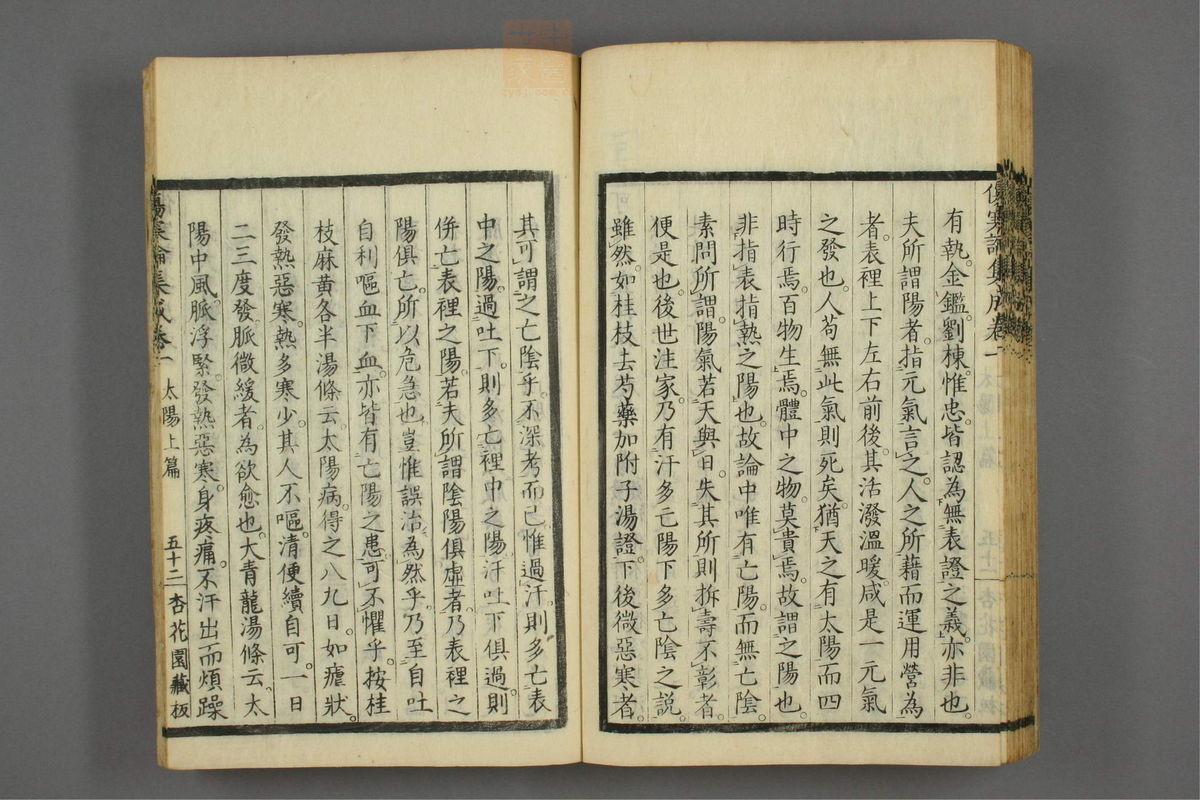 傷寒論集成卷一
有執金鑑劉棟惟忠皆認為無表證之義亦非也
夫所謂陽者指元氣言之人之所藉而運用營為
者表裡上下左右前後其活潑溫暖咸是一元氣
之發也人苟無此氣則死矣猶天之有太陽而四
時行焉百物生焉體中之物莫貴焉故謂之陽也
非指表指熱之陽也故論中唯有亡陽而無亡陰
素問所謂陽氣若天與日失其所則拆壽不彰者
便是也後世注家乃有汗多亡陽下多亡陰之說
雖然如桂枝去芍藥加附子湯證下後微惡寒者
其可謂之亡陰乎不深考而已惟過汗則多亡表
中之陽過吐下則多亡裡中之陽汗吐下俱過則
併亡表裡之陽若夫所謂陰陽俱虛者乃表裡之
陽俱亡所以危急也豈惟誤治為然乎乃至自吐
自利嘔血下血亦皆有亡陽之患可不懼乎按桂
枝麻黃各半湯條云太陽病得之八九日如瘧狀
發熱惡寒熱多寒少其人不嘔清便續自可一日
二三度發脈微緩者為欲愈也大青龍湯條云太
陽中風脈浮緊發熱惡寒身疼痛不汗出而煩躁
傷寒論集成卷一 太陽上篇 五十二 杏花園藏板